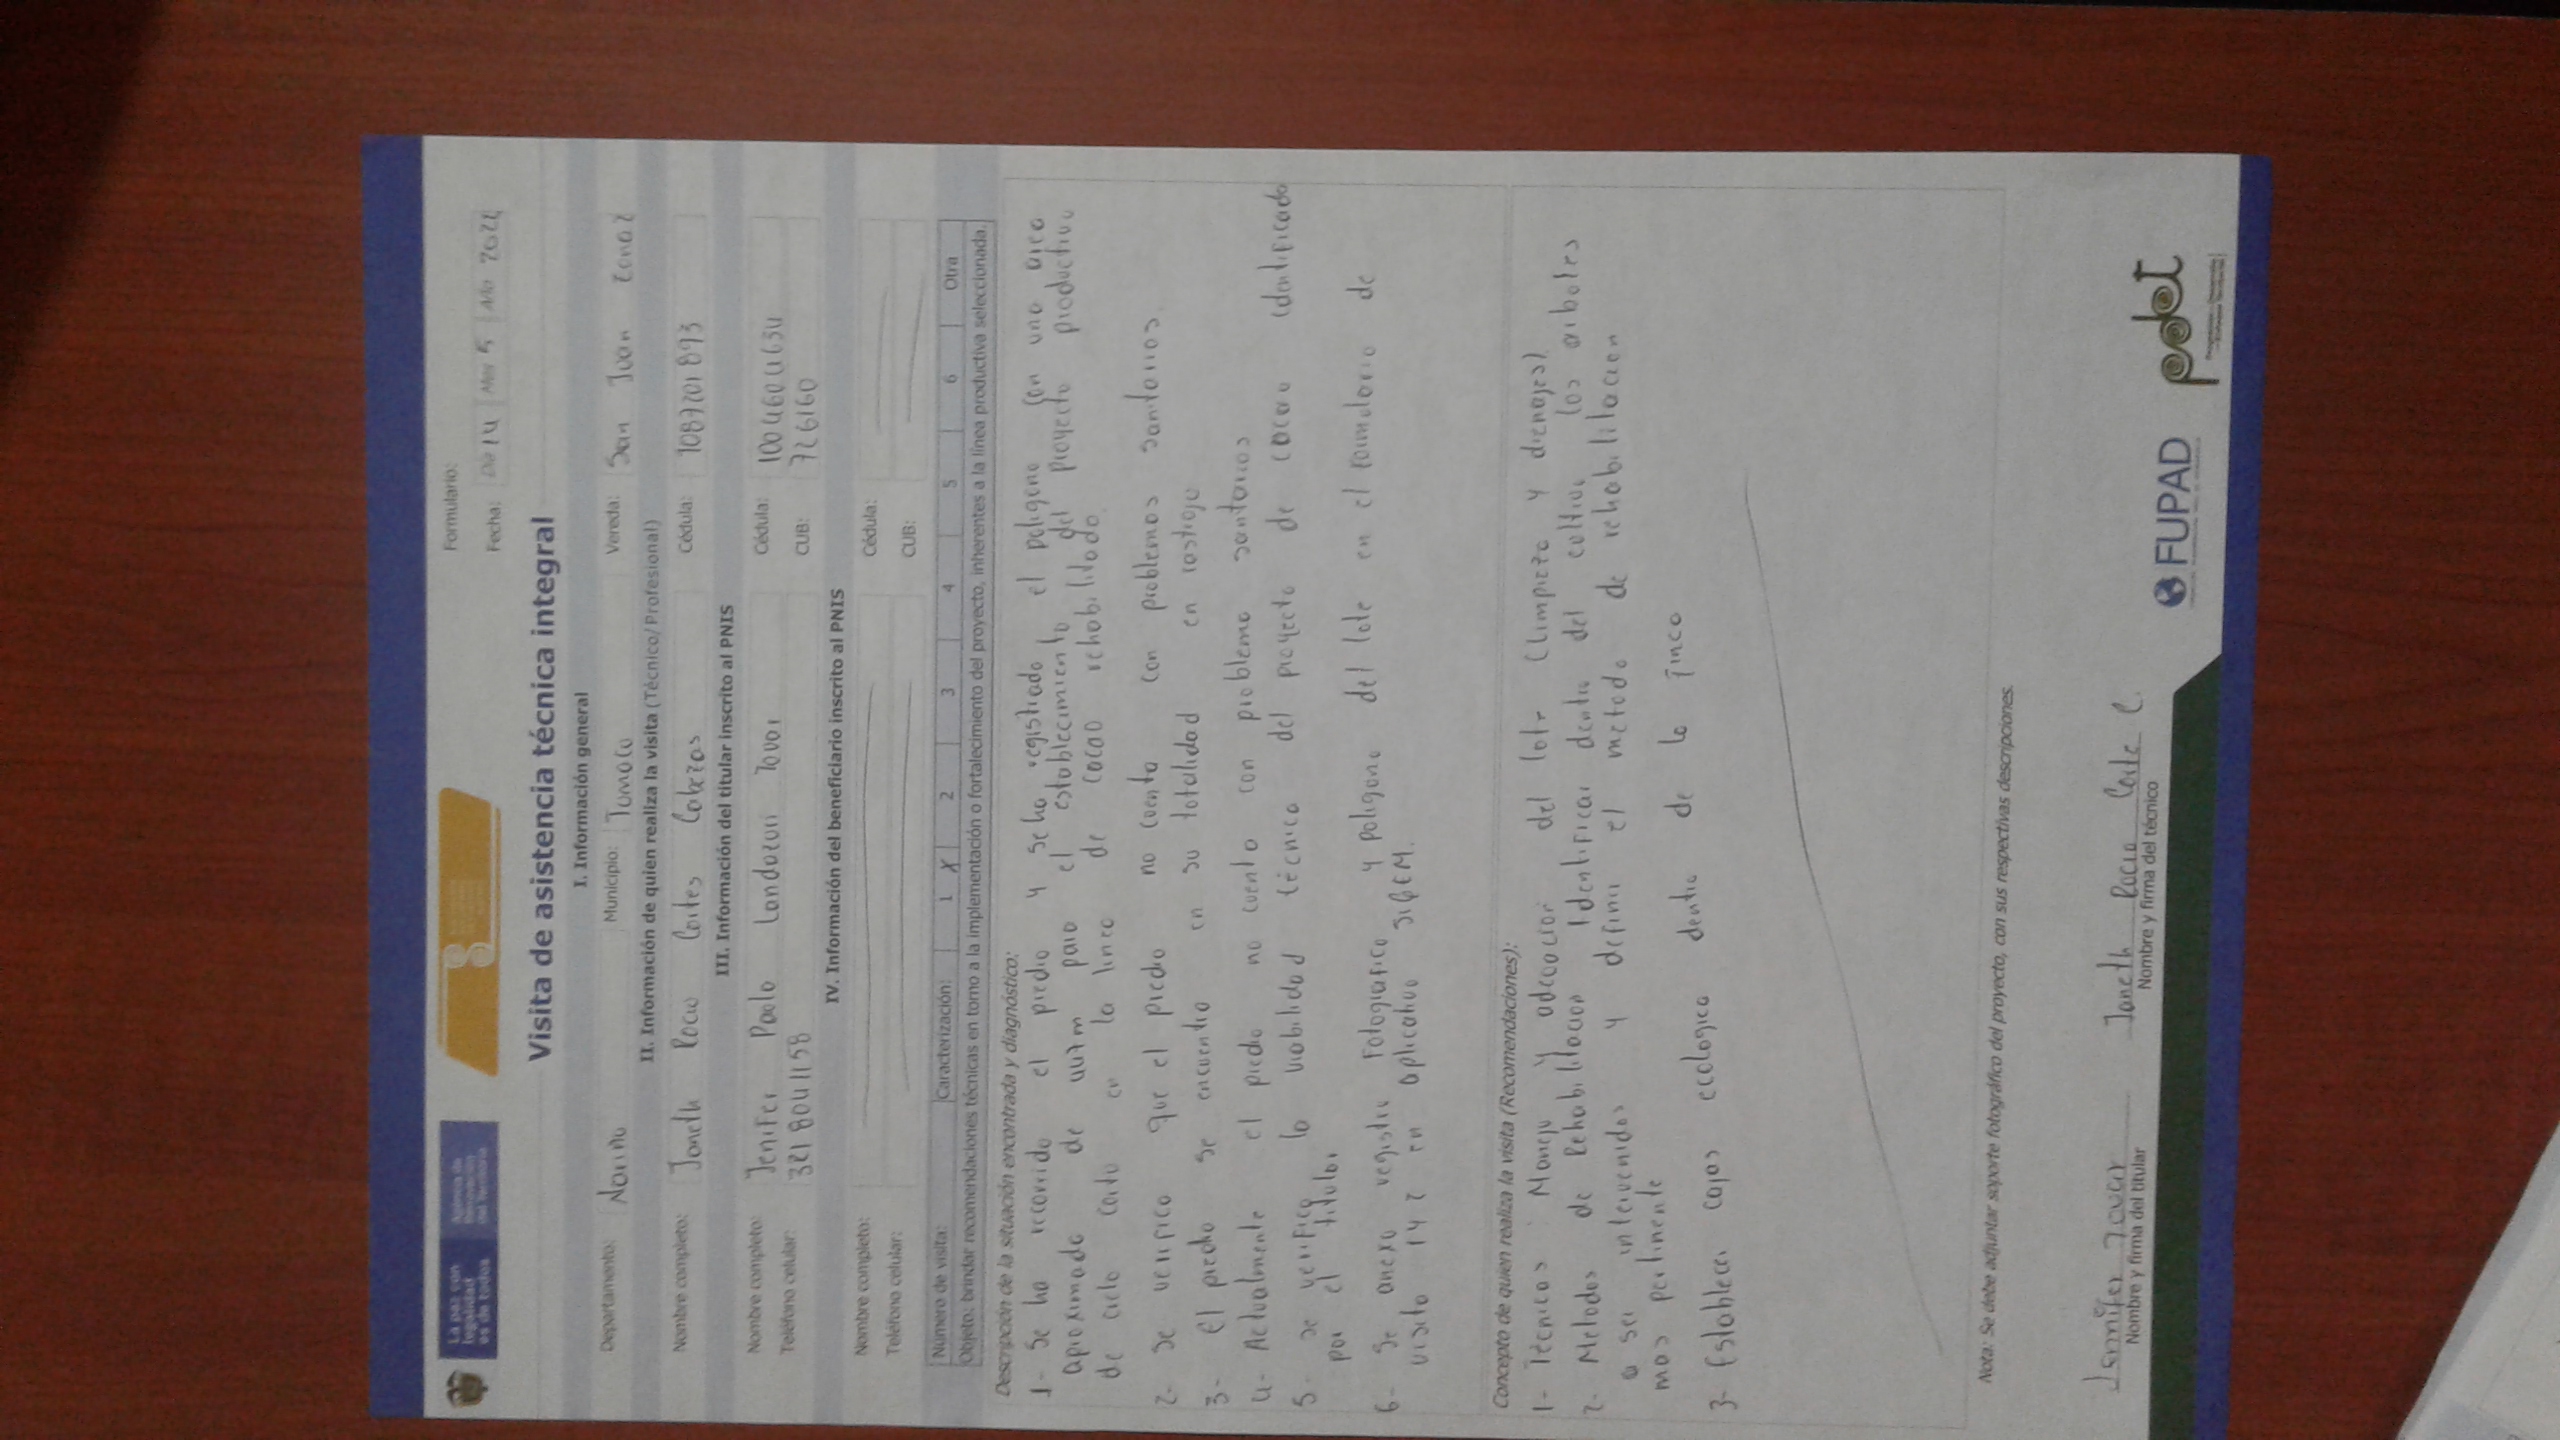 La paz con
legalidad
es de todos
Agencia de
Renovación
del Territorio
Formulario:
Fecha: Día 14 Mes 5 Año 2022
Visita de asistencia técnica integral
I. Información general
Departamento: Nariño Municipio: Tumaco Vereda: San Juan
II. Información de quien realiza la visita (Técnico/Profesional)
Nombre completo: Janeth Rocio Cortes Cabezas Cédula: 1087201893
III. Información del titular inscrito al PNIS
Nombre completo: Jenifer Paola Landazuri Tovar Cédula: 1004604634
Teléfono celular: 3218041158 CUB: 726160
IV. Información del beneficiario inscrito al PNIS
Nombre completo: Cédula:
Teléfono celular: CUB:
Número de visita: Caracterización: 1 X 2 3 4 5 6 Otra
Objeto: brindar recomendaciones técnicas en torno a la implementación o fortalecimiento del proyecto, inherentes a la línea productiva seleccionada.
Descripción de la situación encontrada y diagnóstico:
1- Se ha recorrido el predio y se ha registrado el poligono con una area
aproximada de para el establecimiento del proyecto productivo
de ciclo corto en la linea de cacao rehabilitado.
2- se verifico que el predio no cuenta con problemas sanitarios.
3- El predio se encuentra en su totalidad en rastrojo
4- Actualmente el predio no cuenta con problema sanitarios
5- se verifico la viabilidad técnica del proyecto de cacao identificado
por el titular
6- Se anexa registro Fotografico y poligono del lote en el formulario de
visita 1 y 2 en aplicativo
Concepto de quien realiza la visita (Recomendaciones):
1- Tecnicas Manejo y adecacion del lote (Limpieza y drenajes)
2- Metodos de Rehabilitacion Identificar dentro del cultivo los arboles
a ser intervenidos y definir el metodo de rehabilitacion
mas pertinente
3- Establecer cajas ecologica dentro de la finca
Nota: Se debe adjuntar soporte fotográfico del proyecto, con sus respectivas descripciones.
Jennifer Tovar
Nombre y firma del titular
Janeth Rocio Corte C.
Nombre y firma del técnico
FUPAD
pdet